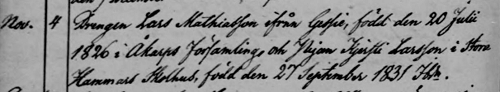 Nov. 4 Drengen Lars Mathiasson ifrån födt den 20 Julii
1826 i Åkarps Församling, och Pigan Kjersti Larsson i Stora
Hammars Skolhus, född den 27 September 1831